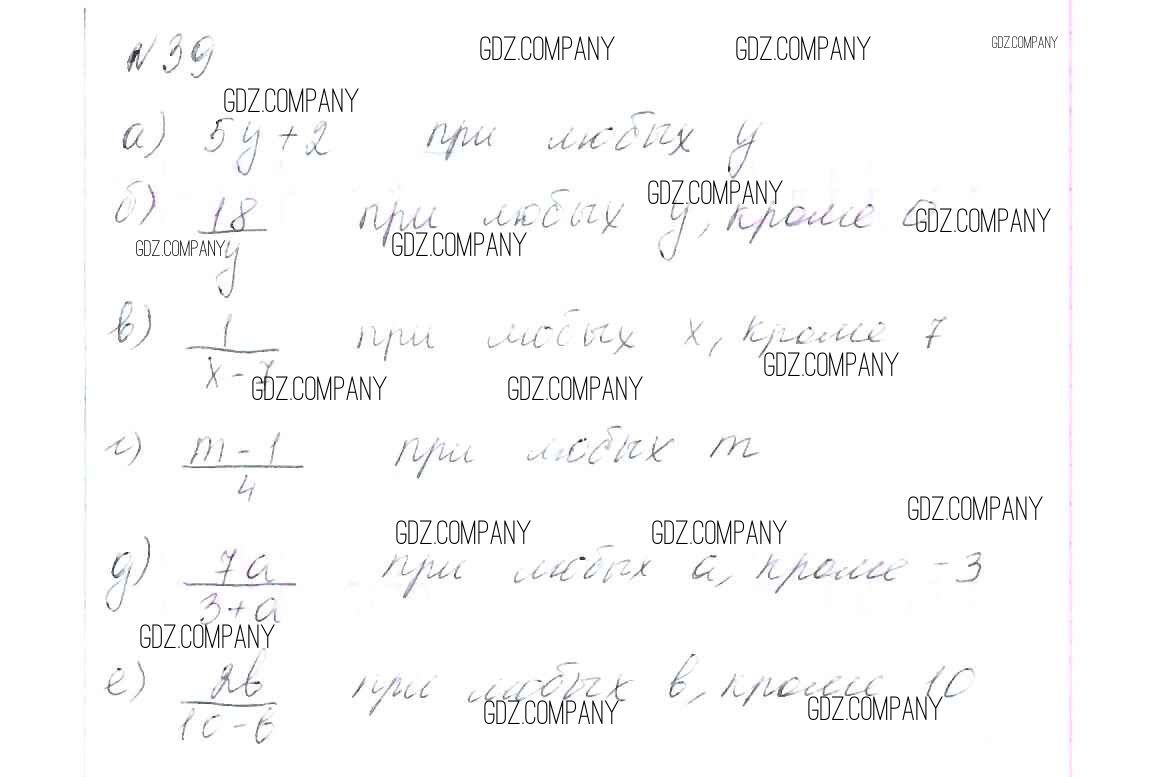 № 39
GDZ.COMPANY GDZ.COMPANY GDZ.COMPANY
GDZ.COMPANY
а) 5y+2 при любых y
GDZ.COMPANY
б) 18/y при любых y, кроме 0
GDZ.COMPANY
GDZ.COMPANY GDZ.COMPANY
в) 1/(x-7) при любых x, кроме 7
GDZ.COMPANY
GDZ.COMPANY GDZ.COMPANY
г) (m-1)/4 при любых m
GDZ.COMPANY
GDZ.COMPANY GDZ.COMPANY
д) 7a/(3+a) при любых a, кроме -3
GDZ.COMPANY
е) 2b/(10-b) при любых b, кроме 10
GDZ.COMPANY GDZ.COMPANY